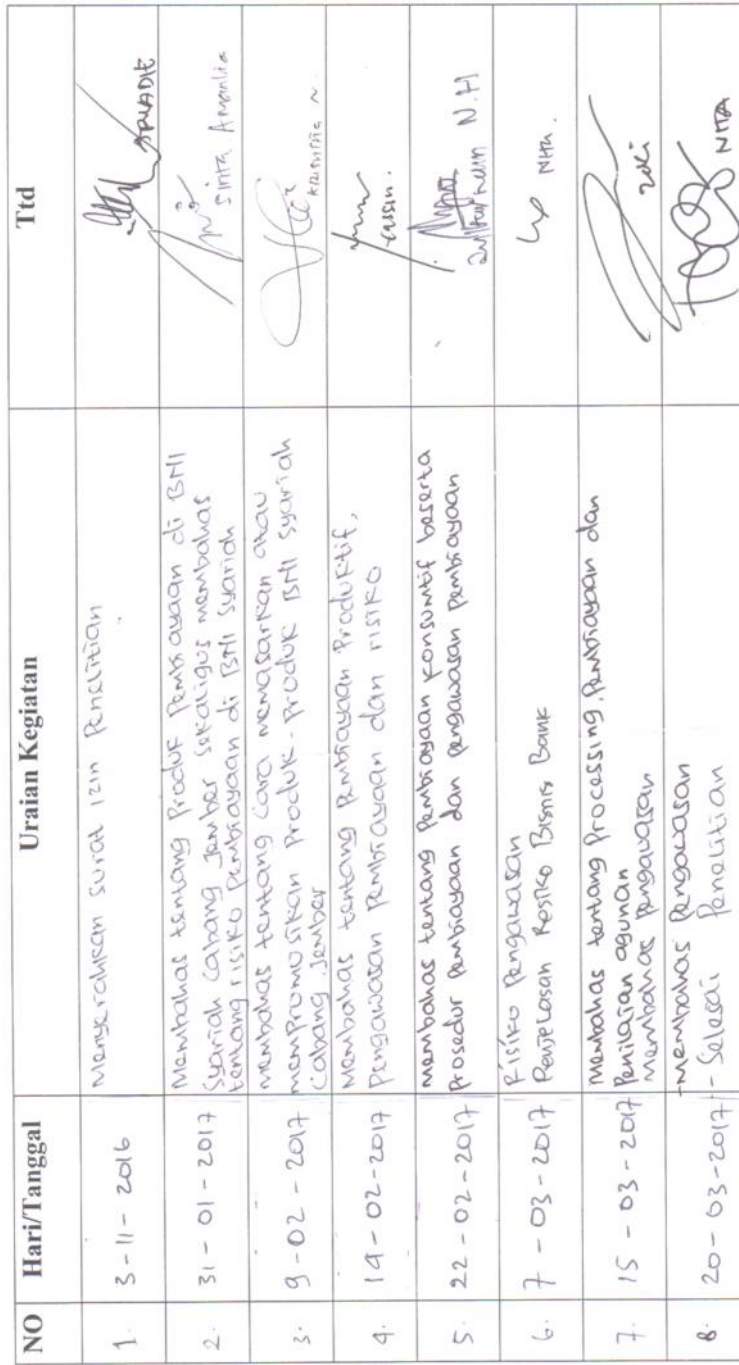 NO Hari/Tanggal Uraian Kegiatan Ttd
1. 3-11-2016 Menyerahkan surat izin Penelitian ARIADIE
2. 31-01-2017 Membahas tentang Produk Pembiayaan di BNI
Syariah Cabang Jember sekaligus membahas
tentang risiko Pembiayaan di BNI Syariah
Sinta Amanlia
3. 9-02-2017 membahas tentang cara memasarkan atau
mempromosikan Produk-Produk BNI Syariah
Cabang Jember
4. 19-02-2017 Membahas tentang Pembiayaan Produktif,
Pengawasan Pembiayaan dan risiko
5. 22-02-2017 membahas tentang Pembiayaan konsumtif beserta
Prosedur Pembiayaan dan pengawasan Pembiayaan
N.H
6. 7-03-2017 Risiko Pengawasan
Penjelasan Resiko Bisnis Bank
Nita.
7. 15-03-2017 Membahas tentang Processing Pembiayaan dan
Penilaian agunan
Membahas Pengawasan
zaki
8. 20-03-2017 -membahas Pengawasan
-Selesai Penelitian
NITA